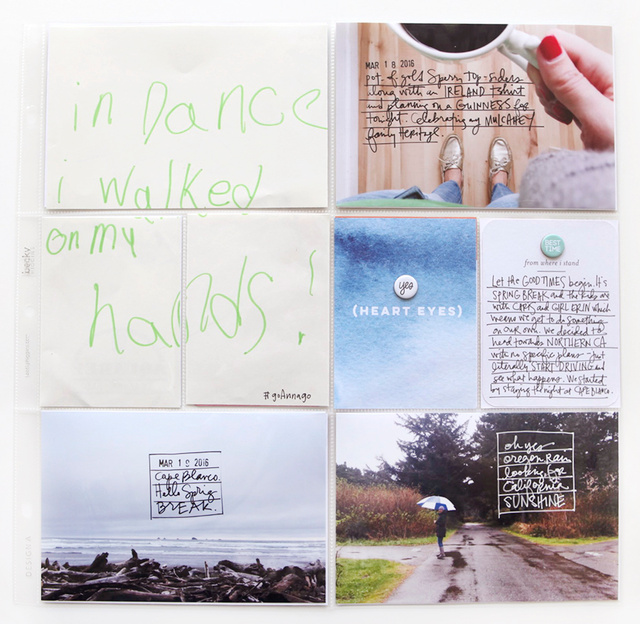 in Dance
i walked
on my
hands!
#goAnnago
MAR 18 2016
pot of gold Sperry Top-Siders
along with an IRELAND t-shirt
and planning on a GUINNESS for
tonight. Celebrating my MULCAHEY
family Heritage.
yes
(HEART EYES)
BEST
TIME
from where i stand
Let the GOOD TIMES begin. It's
SPRING BREAK and the kids are
with CARR and GIRL ERIN which
means we get to do something
on our own. We decided to
head towards NORTHERN CA
with no specific plans. Just
literally START DRIVING and
see what happens. We started
by staying the night at CAPE BLANCO.
MAR 19 2016
Cape Blanco.
Hello Spring
BREAK.
oh yes
oregon Rain
looking for
California
SUNSHINE
becky